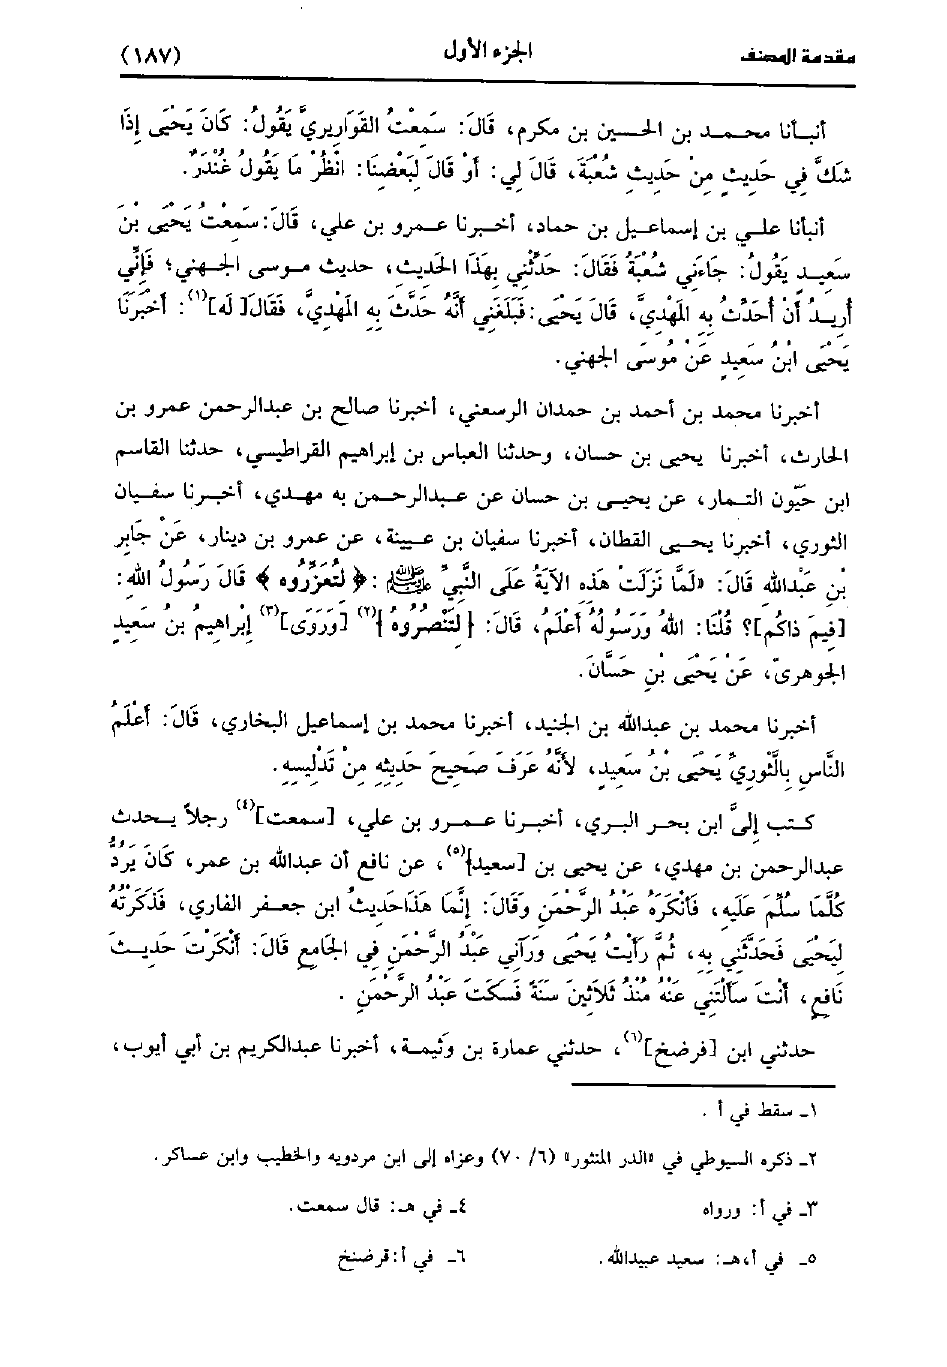 مقدمة المصنف الجزء الأول (١٨٧)
أنبأنا محمد بن الحسين بن مكرم، قَالَ: سَمِعْتُ القَوَارِيرِيَّ يَقُولُ: كَانَ يَحْيَى إِذَا
شَكَّ فِي حَدِيثٍ مِنْ حَدِيثِ شُعْبَةَ، قَالَ لِي: أَوْ قَالَ لِبَعْضِنَا: انْظُرْ مَا يَقُولُ غُنْدَرٌ.
أنبأنا علي بن إسماعيل بن حماد، أخبرنا عمرو بن علي، قَالَ: سَمِعْتُ يَحْيَى بْنَ
سَعِيدٍ يَقُولُ: جَاءَنِي شُعْبَةُ فَقَالَ: حَدِّثْنِي بِهَذَا الحَدِيثِ، حَدِيث موسى الجهني؛ فَإِنِّي
أُرِيدُ أَنْ أُحَدِّثَ بِهِ المَهْدِيَّ، قَالَ يَحْيَى: فَبَلَغَنِي أَنَّهُ حَدَّثَ بِهِ المَهْدِيَّ، فَقَالَ[ لَه](١): أَخْبَرَنَا
يَحْيَى ابْنُ سَعِيدٍ عَنْ مُوسَى الجهني.
أخبرنا محمد بن أحمد بن حمدان الرسعني، أخبرنا صالح بن عبدالرحمن عمرو بن
الحارث، أخبرنا يحيى بن حسان، وحدثنا العباس بن إبراهيم القراطيسي، حدثنا القاسم
ابن حيّون التمار، عن يحيى بن حسان عن عبدالرحمن به مهدي، أخبرنا سفيان
الثوري، أخبرنا يحيى القطان، أخبرنا سفيان بن عيينة، عن عمرو بن دينار، عَنْ جَابِرِ
بْنِ عَبْدِالله قَالَ: «لَمَّا نَزَلَتْ هَذِهِ الآيَةُ عَلَى النَّبِيِّ ﷺ: ﴿لتُعَزِّرُوه﴾ قَالَ رَسُولُ الله:
[فِيمَ ذاكُم]؟ قُلْنَا: اللهُ وَرَسُولُهُ أَعْلَمُ، قَالَ: {لتَنْصُرُوهُ}(٢) [وَرَوَى](٣) إِبْرَاهِيمُ بن سَعِيدٍ
الجوهريّ، عَنْ يَحْيَى بْنِ حَسَّانَ.
أخبرنا محمد بن عبدالله بن الجنيد، أخبرنا محمد بن إسماعيل البخاري، قَالَ: أَعْلَمُ
النَّاسِ بِالثَّوْرِيِّ يَحْيَى بْنُ سَعِيدٍ، لأَنَّهُ عَرَفَ صَحِيحَ حَدِيثِهِ مِنْ تَدْلِيسِهِ.
كتب إليَّ ابن بحر البري، أخبرنا عمرو بن علي، [سمعت](٤) رجلاً يحدث
عبدالرحمن بن مهدي، عن يحيى بن [سعيد](٥)، عن نافع أن عبدالله بن عمر، كَانَ يَرُدُّ
كُلَّمَا سُلِّمَ عَلَيهِ، فَأَنْكَرَهُ عَبْدُ الرَّحْمَنِ وَقَالَ: إِنَّمَا هَذَاحَدِيثُ ابن جعفر القاري، فَذَكَرْتُهُ
لِيَحْيَى فَحَدَّثَنِي بِهِ، ثُمَّ رَأَيْتُ يَحْيَى وَرَآنِي عَبْدُ الرَّحْمَنِ فِي الجَامِعِ قَالَ: أَنْكَرْتَ حَدِيثَ
نَافِعٍ، أَنْتَ سَأَلْتَنِي عَنْهُ مُنْذُ ثَلاَثِينَ سَنَةً فَسَكَتَ عَبْدُ الرَّحْمَنِ.
حدثني ابن [فرضخ](٦)، حدثني عمارة بن وثيمة، أخبرنا عبدالكريم بن أبي أيوب،
١ـ سقط في أ.
٢ـ ذكره السيوطي في «الدر المنثور» (٦/ ٧٠) وعزاه إلى ابن مردويه والخطيب وابن عساكر.
٣ـ في أ: ورواه ٤ـ في هـ: قال سمعت.
٥ـ في أ،هـ: سعيد عبيدالله. ٦ـ في أ:قرضنخ